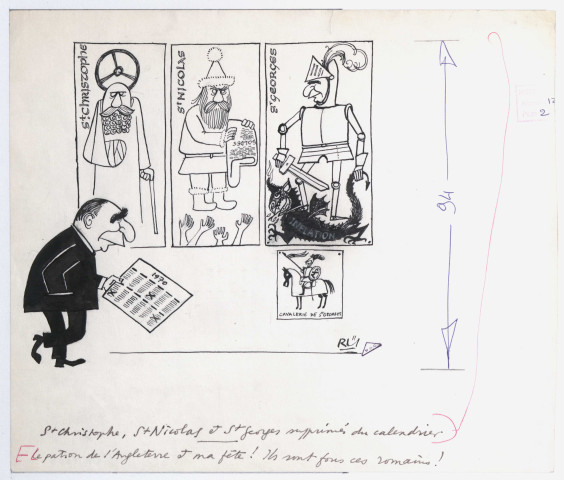 St CHRISTOPHE
St NICOLAS
St GEORGES
SOLDES
INFLATION
1970
CAVALERIE DE St GEORGES
94
2
St Christophe, St Nicolas et St Georges supprimés du calendrier
E le patron de l'Angleterre et ma fête ! Ils sont fous ces romains !